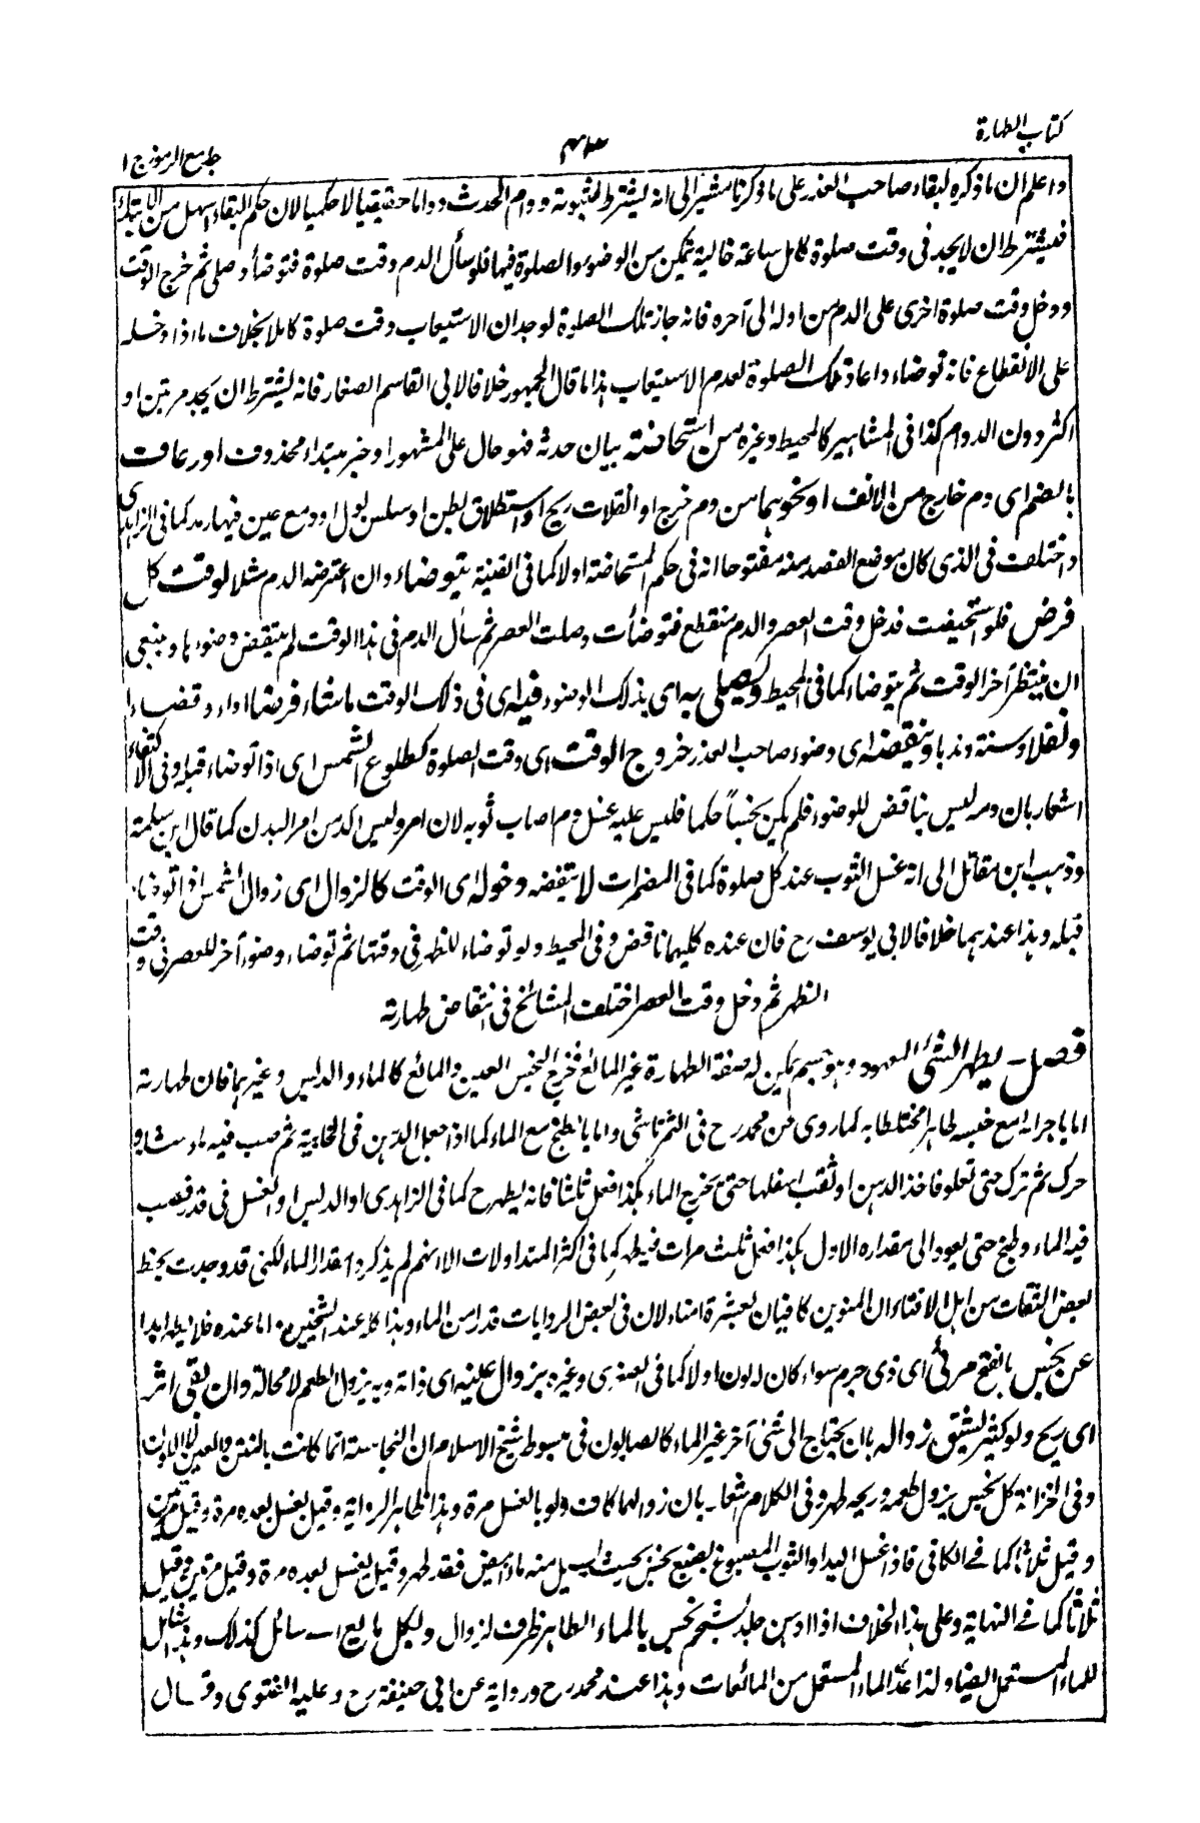 كتاب الطهارة
٤٣
جامع الرموز ج ١
واعلم ان ما ذكره لبقاء صاحب العذر على ما ذكرنا مشير الى انه يشترط لثبوته دوام الحدث دواما حقيقيا لا حكميا لان حكم البقاء اسهل من الابتداء
فيشترط ان لا يجد فى وقت صلوة كامل ساعة خالية يتمكن من الوضوء والصلوة فيها فلو سأل الدم وقت صلوة فتوضأ وصلى ثم خرج الوقت
ودخل وقت صلوة اخرى على الدم من اوله الى آخره فانه جاز تلك الصلوة لوجدان الاستيعاب وقت صلوة كاملا بخلاف ما اذا دخله
على الانقطاع فانه توضاء واعادة تلك الصلوة لعدم الاستيعاب هذا ما قال الجمهور خلافا لابى القاسم الصفار فانه يشترط ان يجد مرتين او
اكثر دون الدوام كذا فى المشاهير كالمحيط وغيره من استحاضة بيان حدثه فهو حال على المشهور او خبر مبتداء محذوف او رعاف
بالضم اى دم خارج من الانف او نحوهما من دم خرج او انفلات ريح او استطلاق بطن او سلس بول او دمع عين فيها رمد كما فى الزاهدى
واختلف فى الذى كان موضع الفصد منه مفتوحا انه فى حكم المستحاضة اولا كما فى القنية يتوضاء وان اعترضه الدم مثلا لوقت كل
فرض فلو استحيضت فدخل وقت العصر والدم منقطع فتوضأت وصلت العصر ثم سأل الدم فى هذا الوقت لم ينتقض وضوءها وينبغى
ان ينتظر آخر الوقت ثم يتوضاء كما فى المحيط ويصلى به اى بذلك الوضوء فيه اى فى ذلك الوقت ما شاء فرضا اداء وقضاء
ونفلا وسنة وندبا وينقضه اى وضوء صاحب العذر خروج الوقت اى وقت الصلوة كطلوع الشمس اى اذا توضاء قبله وفى الاكتفاء
اشعار بان دمه ليس بناقض للوضوء فلم يكن نجسا حكما فليس عليه غسل دم اصاب ثوبه لان امره ليس آكد من امر البدن كما قال ابن سلمة
وذهب ابن مقاتل الى انه غسل الثوب عند كل صلوة كما فى المضمرات لا ينقضه دخوله اى الوقت كالزوال اى زوال الشمس اذا توضاء
قبله وهذا عندهما خلافا لابى يوسف رح فان عنده كليهما ناقض وفى المحيط ولو توضاء للظهر فى وقتها ثم توضاء وضوء آخر للعصر فى وقت
الظهر ثم دخل وقت العصر اختلف المشائخ فى انتقاض طهارته
فصل يطهر الشئ المعهود وهو جسم يمكن له صفة الطهارة غير المائع فخرج النجس العين والمائع كالماء والدبس وغيرهما فان طهارته
اما باجرائه مع جنسه طاهر مختلطا به كما روى عن محمد رح فى التمرتاشى واما بالطبخ مع الماء كما اذا جعل الدهن فى الخابية ثم صب فيه ماء مثله و
حرك ثم ترك حتى تعلو فاخذ الدهن او ثقب اسفلها حتى يخرج الماء هكذا فعل ثلثا فانه يطهر ح كما فى الزاهدى او الدبس او العسل فى قدر فصب
فيه الماء وطبخ حتى يعود الى مقداره الاول هكذا فعل ثلث مرات فيطهر كما فى اكثر المتداولات الا انهم لم يذكروا مقدار الماء لكنى قد وجدت بخط
بعض الثقات من اهل الافتاء ان المنوين كافيان لعشرة امناء لان فى بعض الروايات قدر من الماء وهذا كله عند الشيخين رح اما عنده فلا يطهر ابدا
عن نجس بالفتح مرئى اى ذى جرم سواء كان له لون اولا كما فى العنبرى وغيره بزوال عينه اى ذاته وبه يزول الطعم لا محالة وان بقى اثر
اى ريح ولو كثير يشق زواله بان يحتاج الى شئ آخر غير الماء كالصابون فى مبسوط شيخ الاسلام ان النجاسة انما كانت بالنتن والعين لا اللون
وفى الخزانة كل نجس يزول طعمه وريحه طهر وفى الكلام اشعار بان زوالهما كاف ولو بالغسل مرة وهذا ظاهر الرواية وقيل يغسل بعده مرة وقيل مرتين
وقيل ثلاثا كما فى الكافى فاذا غسل اليد او الثوب المصبوغ بصبغ نجس بحيث يسيل منه ماء ابيض فقد طهر وقيل يغسل بعده مرة وقيل مرتين وقيل
ثلاثا كما فى النهاية وعلى هذا الخلاف اذا ادهن جلد بشحم نجس بالماء الطاهر ظرف لزوال ولكل مايع اى سائل كذلك وهذا شامل
للماء المستعمل ايضا ولذا عد الماء المستعمل من المائعات وهذا عند محمد رح ورواية عن ابى حنيفة رح وعليه الفتوى وقال